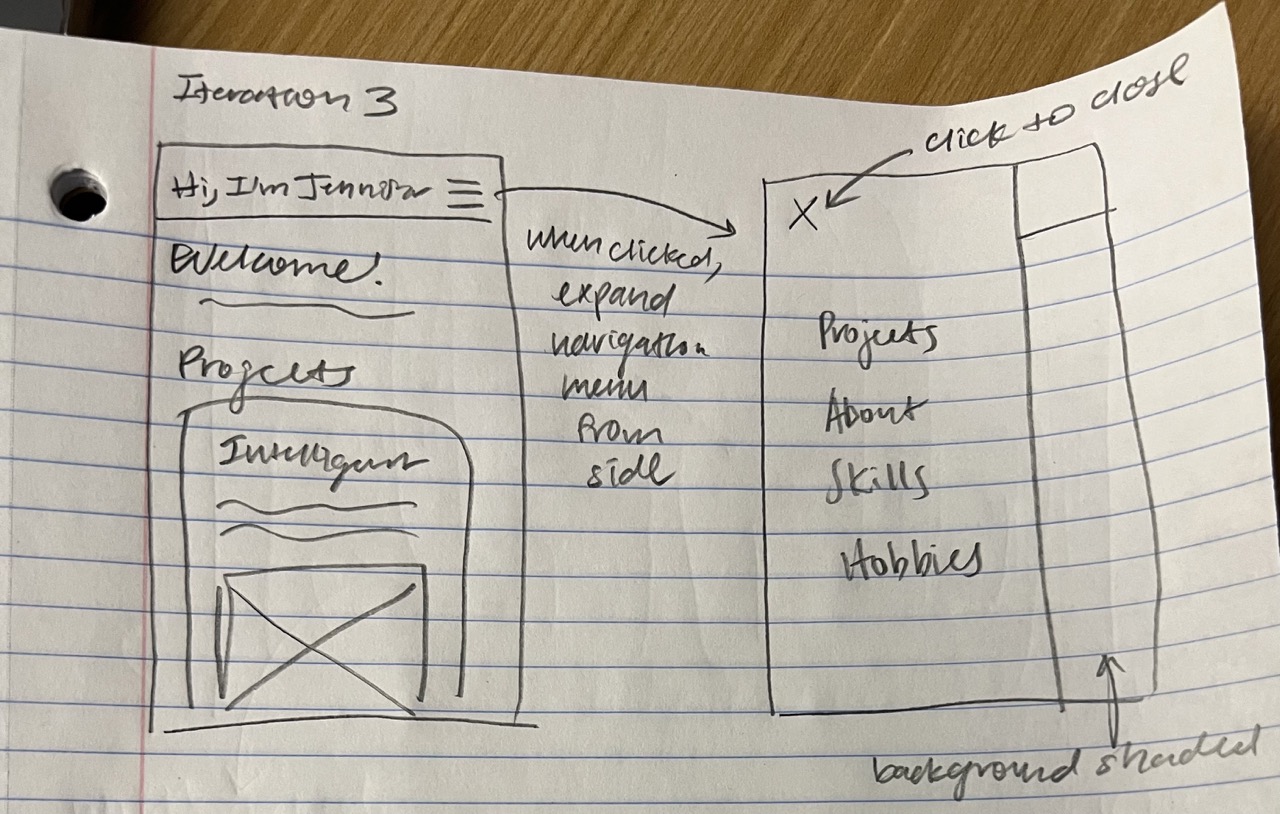 Iteration 3
Hi, I'm Jennifer
Welcome!
Projects
Intelligent
when clicked,
expand
navigation
menu
from
side
click to close
X
Projects
About
Skills
Hobbies
background shaded